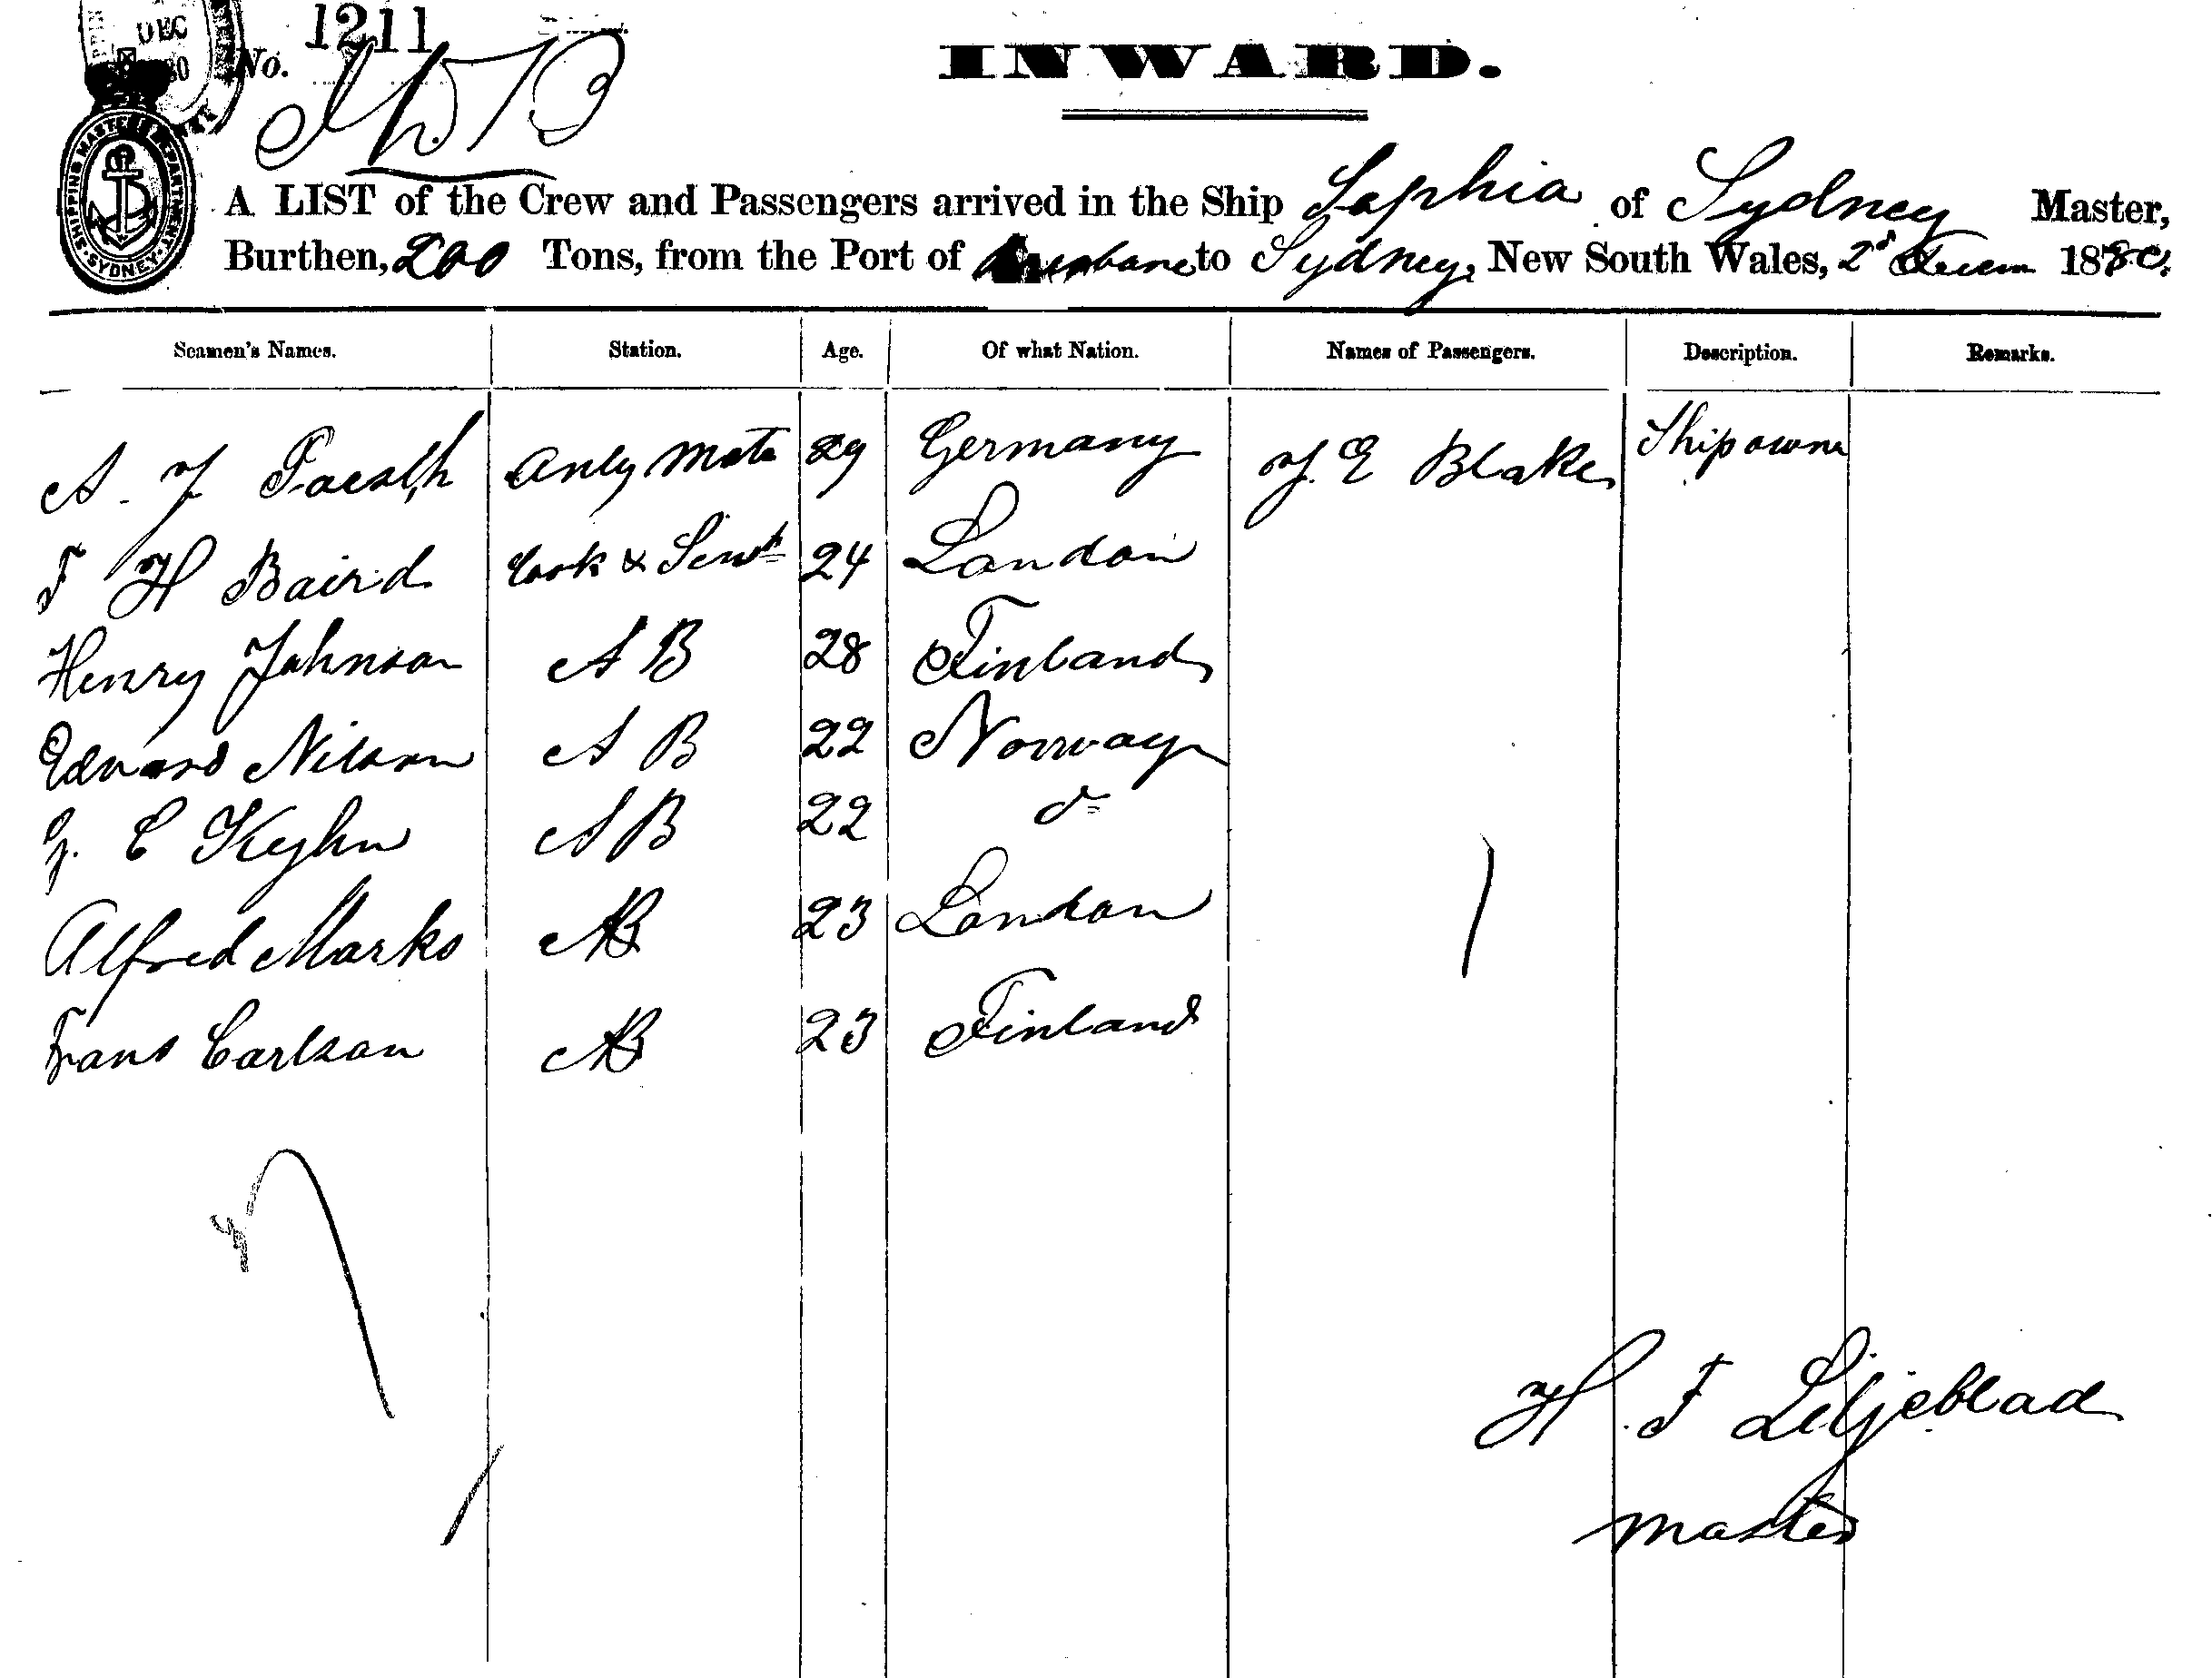 DEC
80
No. 1211
SHIPPING MASTER'S DEPARTMENT
SYDNEY
INWARD.
A LIST of the Crew and Passengers arrived in the Ship Sophia of Sydney Master,
Burthen, 200 Tons, from the Port of Brisbane to Sydney, New South Wales, 2d Decem 1880.
Seamen's Names. Station. Age. Of what Nation. Names of Passengers. Description. Remarks.
A. J Only Mate 29 Germany J. E Blake Shipowner
F H Baird Cook & Stewd 24 London
Henry Johnson A B 28 Finland
Edward Nilson A B 22 Norway
G. C A B 22 do
Alfred Marks AB 23 London
Frans Carlson AB 23 Finland
7
1
H. F Liljeblad
Master